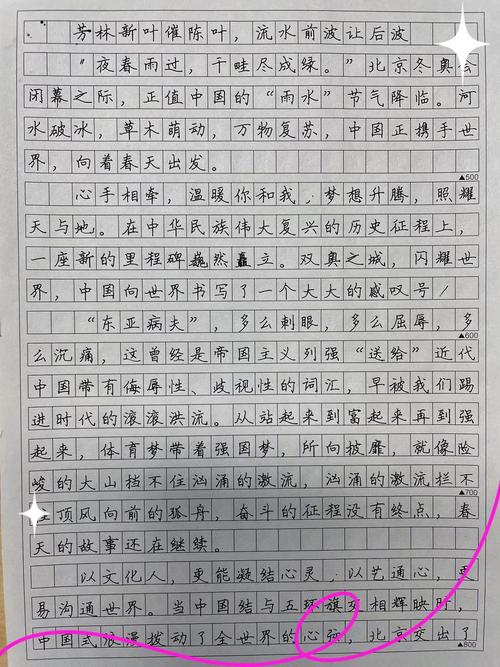 芳林新叶催陈叶，流水前波让后波
“夜春雨过，千畦尽成绿。”北京冬奥会
闭幕之际，正值中国的“雨水”节气降临。河
水破冰，草木萌动，万物复苏，中国正携手世
界，向着春天出发。
▲500
心手相牵，温暖你和我；梦想升腾，照耀
天与地。在中华民族伟大复兴的历史征程上，
一座新的里程碑巍然矗立。双奥之城，闪耀世
界，中国向世界书写了一个大大的感叹号！
“东亚病夫”，多么刺眼，多么屈辱，多
▲600
么沉痛，这曾经是帝国主义列强“送给”近代
中国带有侮辱性、歧视性的词汇，早被我们踢
进时代的滚滚洪流。从站起来到富起来再到强
起来，体育梦带着强国梦，所向披靡，就像险
峻的大山挡不住汹涌的激流，汹涌的激流拦不
▲700
顶风向前的孤舟，奋斗的征程没有终点，春
天的故事还在继续。
以文化人，更能凝结心灵；以艺通心，更
易沟通世界。当中国结与五环旗交相辉映时，
中国式浪漫拨动了全世界的心弦，北京交出了
▲800